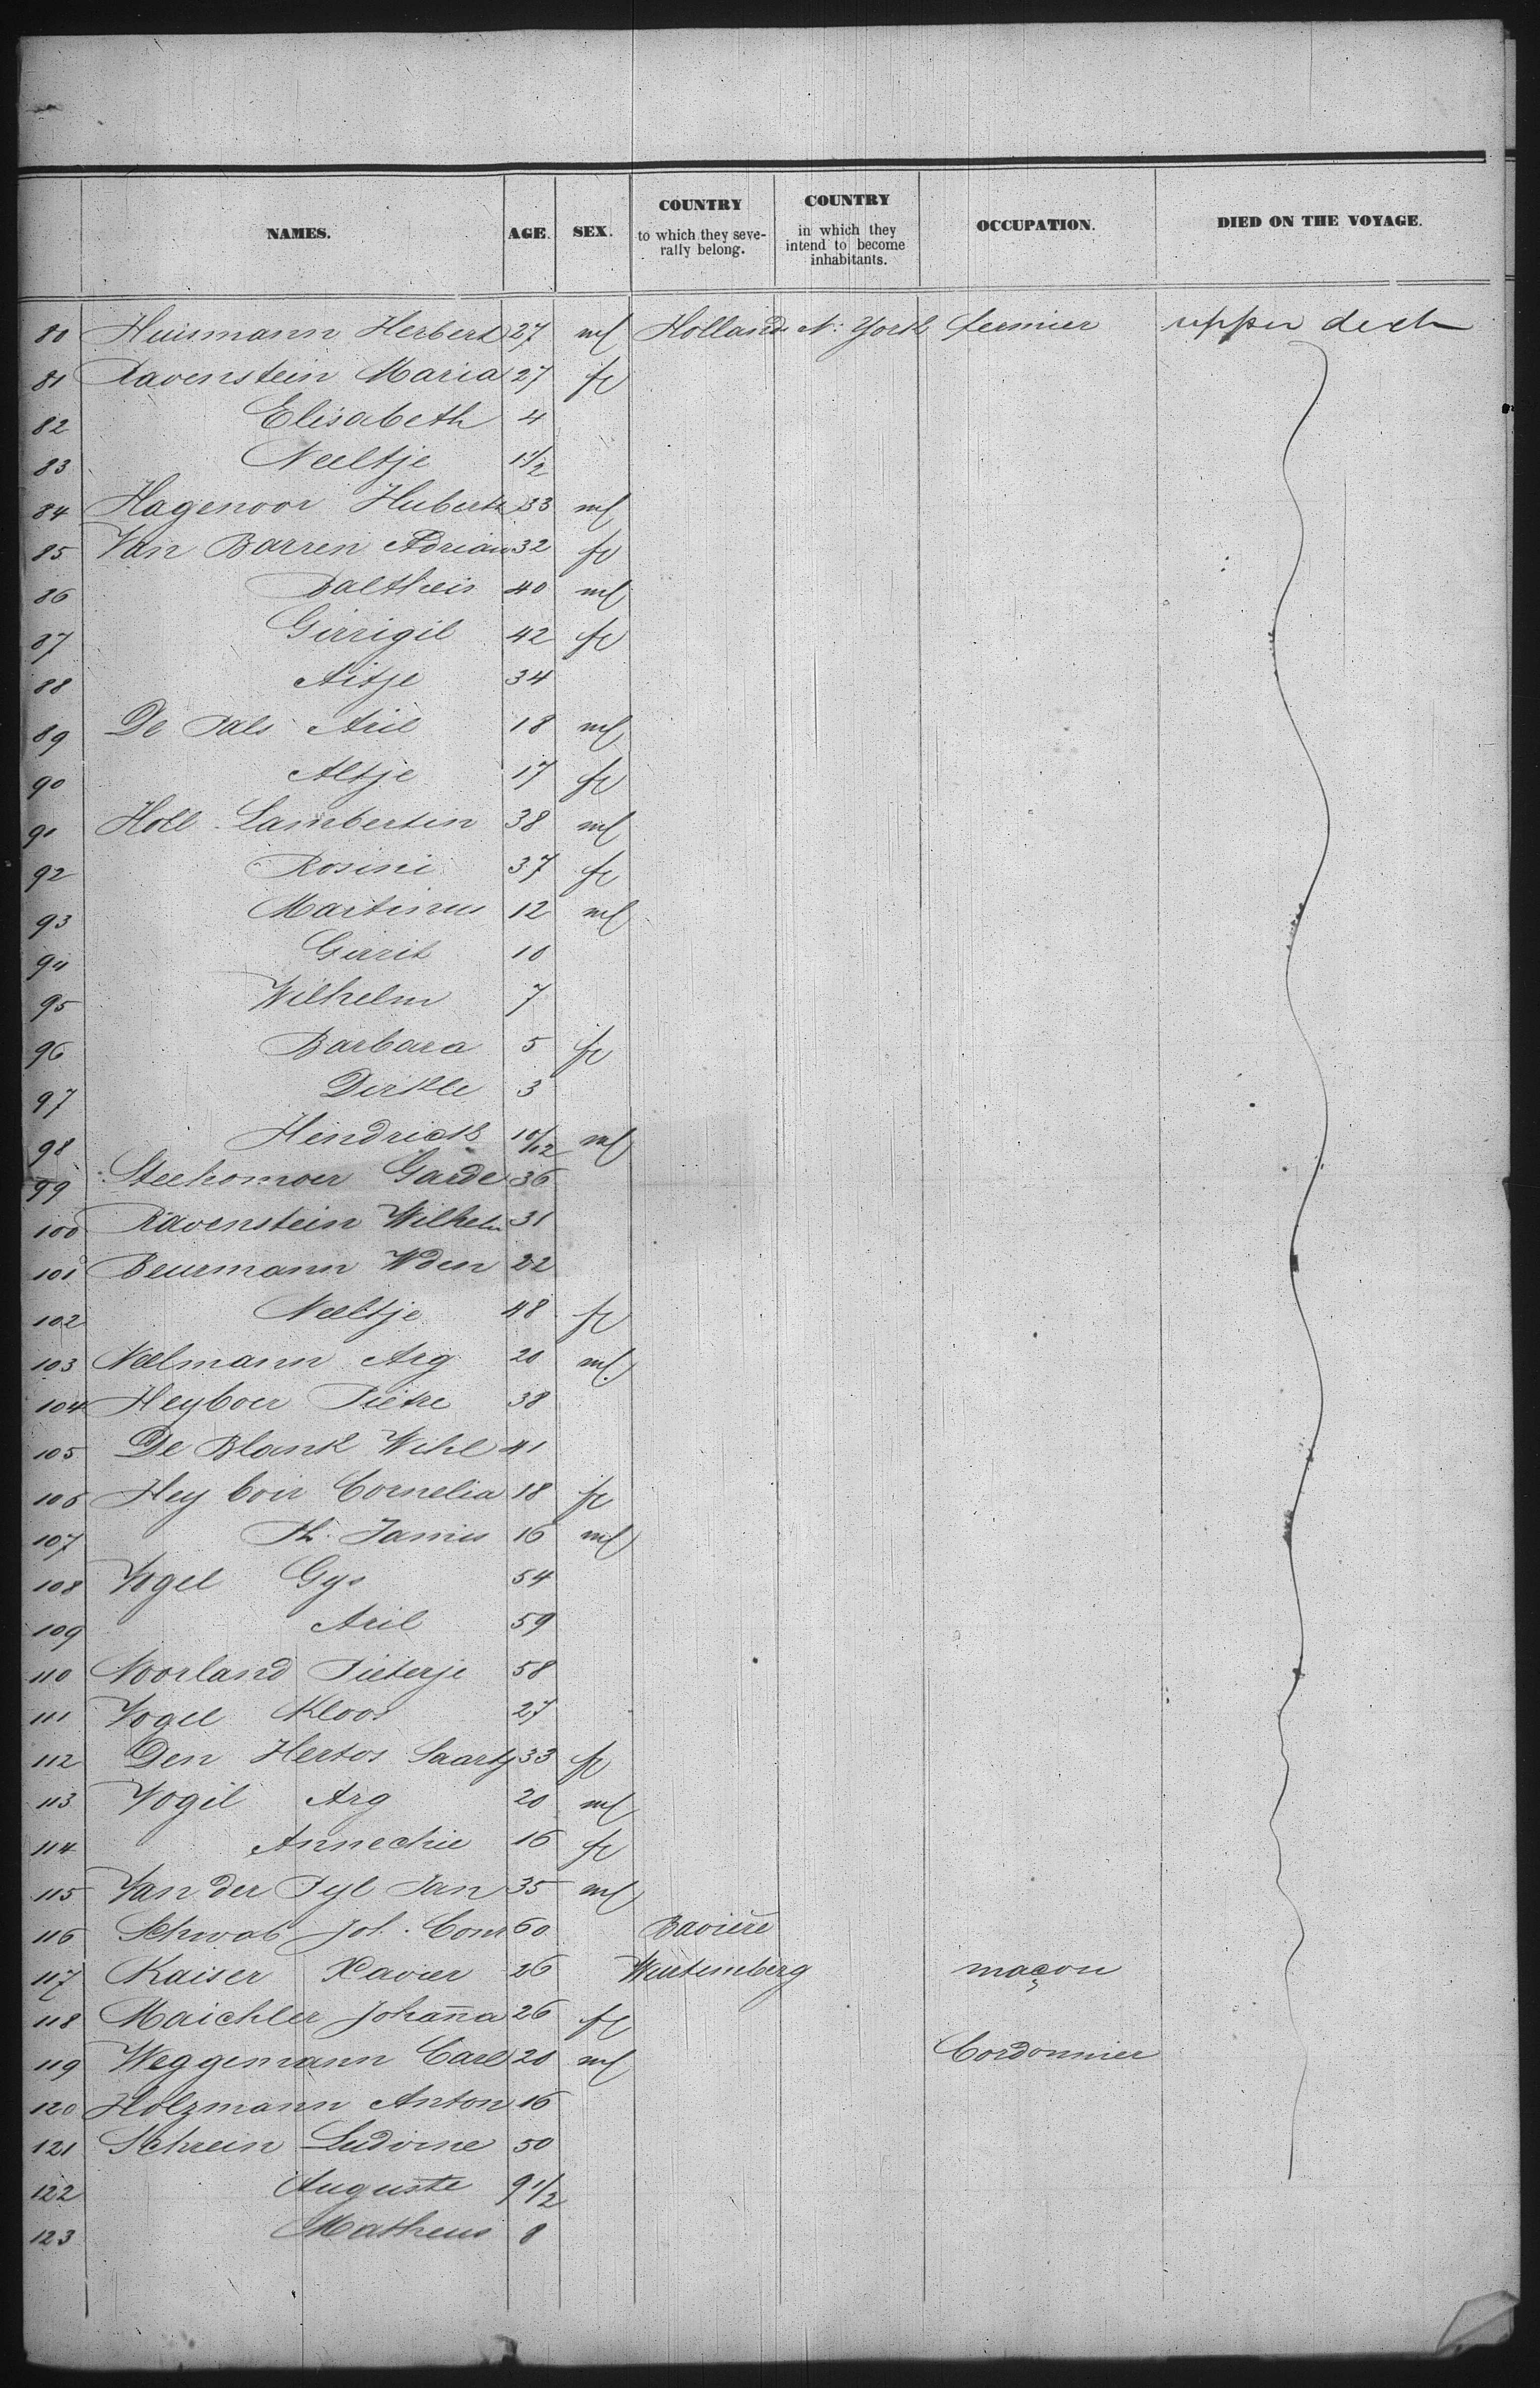 NAMES. AGE. SEX. COUNTRY to which they severally belong. COUNTRY in which they intend to become inhabitants. OCCUPATION. DIED ON THE VOYAGE.
80 Huismann Herbert 27 ml Holland N. York fermier upper deck
81 Ravenstein Maria 27 fe
82 Elisabeth 4
83 Neeltje 1 1/2
84 Hagenoor Hubert 33 ml
85 Van Barren Adrian 32 fe
86 Baltheis 40 ml
87 Girrigil 42 fe
88 Aitje 34
89 De Pals Arie 18 ml
90 Altje 17 fe
91 Holl Lambertin 38 ml
92 Rosini 37 fe
93 Martinus 12 ml
94 Gerrit 10
95 Wilhelm 7
96 Barbara 5 fe
97 Dirkle 3
98 Hendrick 10/12 ml
99 Garde 36
100 Ravenstein Wilhelm 31
101 Beurmann Wden 22
102 Neeltje 48 fe
103 Neelmann Arg 20 ml
104 Heyboer Pietre 38
105 De Blank Wihl 41
106 Hey boir Cornelia 18 fe
107 Ph. Jannis 16 ml
108 Vogel Gys 54
109 Aril 59
110 Noorland Pieterje 58
111 Vogel Kloos 27
112 Den Hertos Saartj 33 fe
113 Vogil Arg 20 ml
114 Annechie 16 fe
115 Van der Pyl Jan 35 ml
116 Schwab Joh. Conr 60 Bavière
117 Kaiser Xavier 26 Wurtemberg maçon
118 Maichler Johanna 26 fe
119 Weggemann Carl 20 ml Cordonnier
120 Holzmann Anton 16
121 Schrein Ludvine 50
122 Auguste 9 1/2
123 Matheus 8